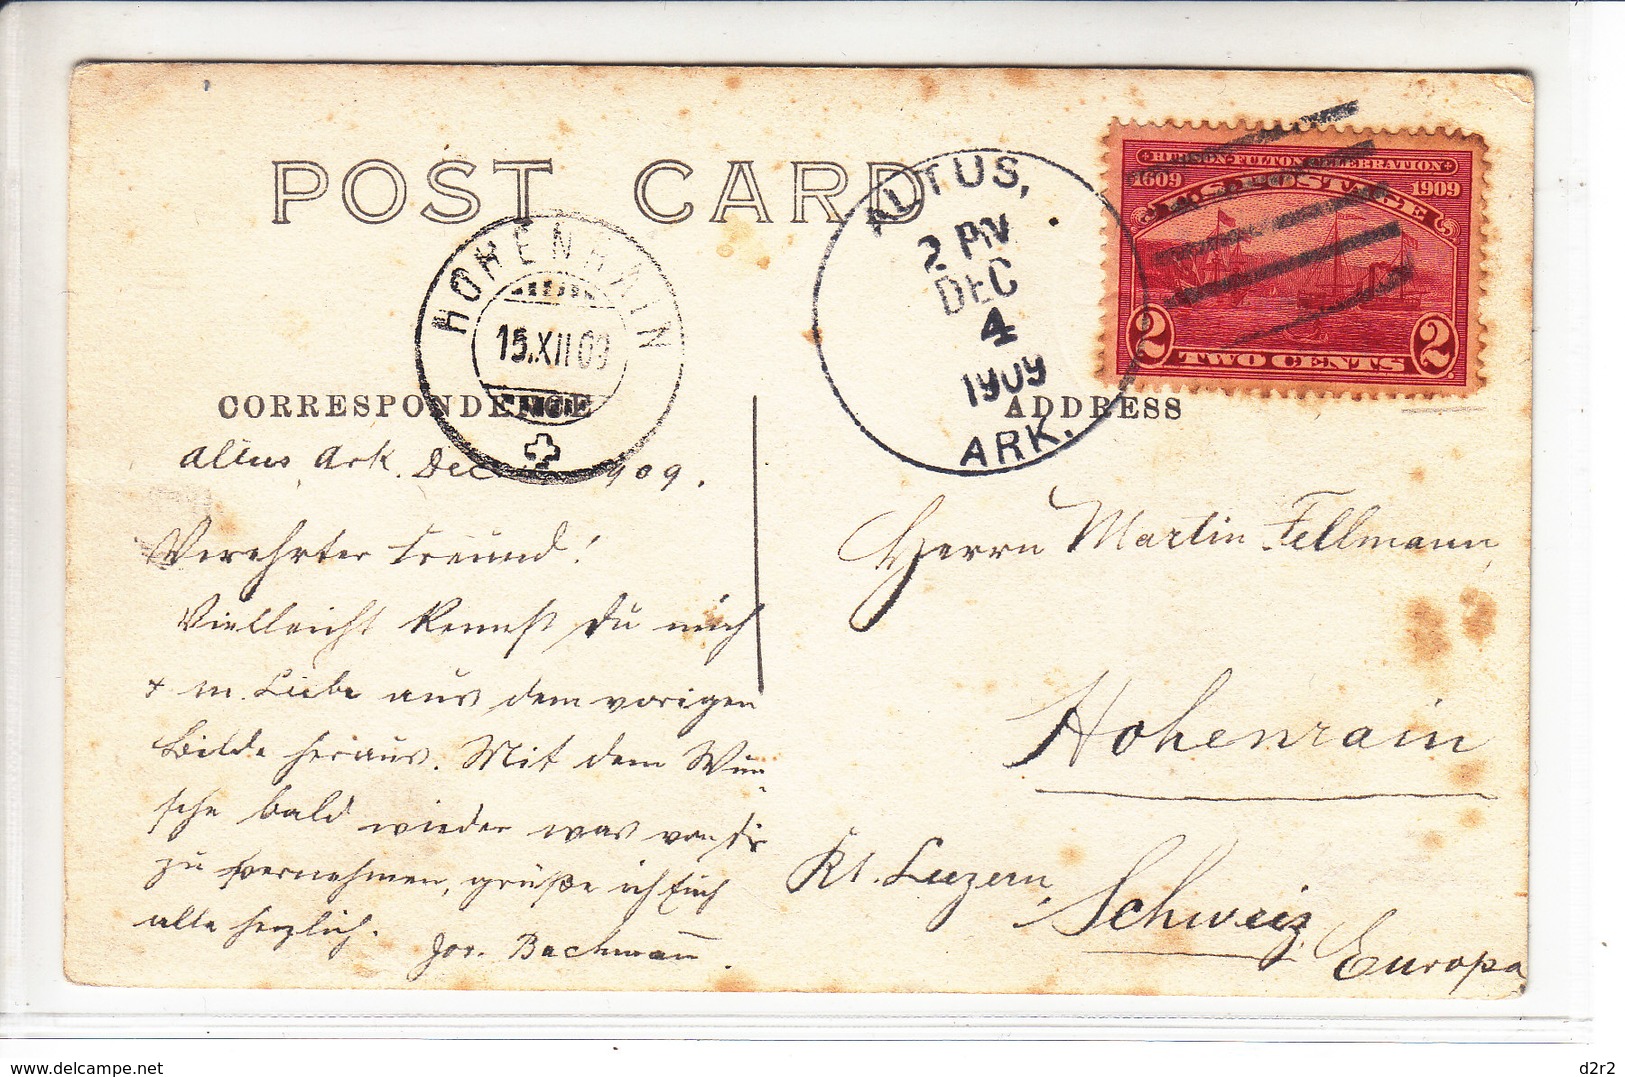 POST CARD
HOHENRAIN
15.XII.09
ALTUS,
2 PM
DEC
4
1909
ARK.
HUDSON-FULTON CELEBRATION
1609 U.S. POSTAGE 1909
2 TWO CENTS 2
CORRESPONDENCE
ADDRESS
Altus Ark. Dec. 1909.
Verehrter Freund!
Vielleicht kennst du mich
+ m. Liebe aus dem vorigen
Bilde heraus. Mit dem Wun-
sche bald wieder was von dir
zu vernehmen, grüße ich Euch
alle herzlich.
Jos. Bachmann.
Herrn Martin Fellmann,
Hohenrain
Kt. Luzern,
Schweiz
Europa
www.delcampe.net
d2r2